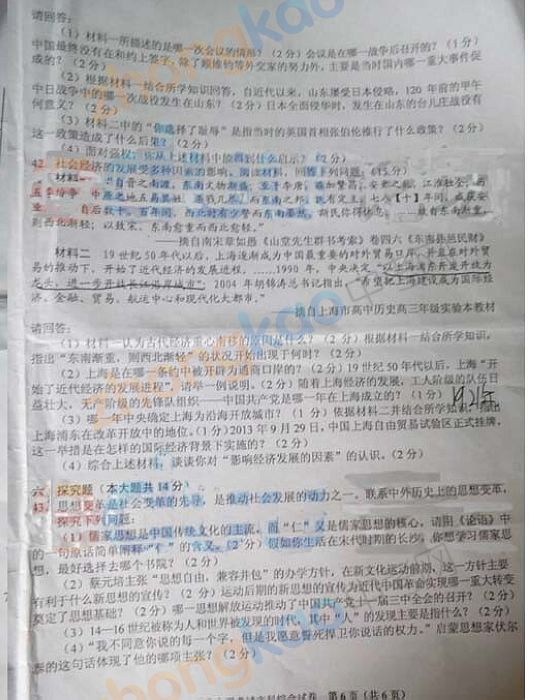 请回答:
(1) 材料一所描述的是哪一次会议的情形?(2分)会议是在哪一战争后召开的?(1分)
中国最终没有在和约上签字,除了顾维钧等外交家的努力外,主要是当时国内哪一重大事件促
成的?(2分)
(2) 根据材料一结合所学知识回答,自近代以来,山东屡受日本侵略,120年前的甲午
中日战争中的哪一次战役发生在山东?(2分)日本全面侵华时,发生在山东的台儿庄战役有
何意义?(2分)
(3) 材料二中的“你选择了耻辱”是指当时的英国首相张伯伦推行了什么政策?(2分)
这一政策造成了什么后果?(2分)
(4) 面对强权,你从上述材料中能得到什么启示?(2分)
42. 社会经济的发展受多种因素的影响。阅读材料,回答下列问题:(15分)
材料一 “自晋之南渡,东南文物渐盛,至于李唐,益加繁昌;安史之乱,江淮独全;历
五季纷争,中原之地五易其姓,
西北渐轻;以致宋,东南愈重而西北愈轻。”
——摘自南宋章如愚《山堂先生群书考索》卷四六《东南县邑民财》
材料二 19世纪50年代以后,上海逐渐成为中国最重要的对外贸易口岸,并且在对外贸
易的推动下,开始了近代经济的发展进程,……1990年,中央决定“以上海浦东开发开放为
龙头,进一步开放长江沿岸城市”;2004年胡锦涛总书记指出,“希望把上海建设成为国际经
济、金融、贸易、航运中心和现代化大都市。”
——摘自上海市高中历史高三年级实验本教材
请回答:
(1) 材料一认为古代经济重心南移的原因是什么?(2分)根据材料一结合所学知识,
指出“东南渐重,则西北渐轻”的状况开始出现于何时?(2分)
(2) 上海是在哪一条约中被开辟为通商口岸的?(2分)19世纪50年代以后,上海“开
始了近代经济的发展进程”,请举一例说明。(2分)随着上海经济的发展,工人阶级的队伍日
益壮大,无产阶级的先锋队组织——中国共产党是哪一年在上海成立的?(1分)1921年
(3) 哪一年中央确定上海为沿海开放城市?(1分)依据材料二并结合所学知识,指出
上海浦东在改革开放中的地位。(1分)2013年9月29日,中国上海自由贸易试验区正式挂牌,
这一举措是在怎样的国际经济背景下实施的?(2分)
(4) 综合上述材料,谈谈你对“影响经济发展的因素”的认识。(2分)
六、探究题(本大题共14分)
43. 思想变革是社会变革的先导,是推动社会发展的动力之一。联系中外历史上的思想变革,
探究下列问题:
(1) 儒家思想是中国传统文化的主流,而“仁”又是儒家思想的核心,请用《论语》中
的一句原话简单阐释“仁”的含义。(2分)假如你生活在宋代时期的长沙,你想学习儒家思
想,最好选择去哪个书院?(2分)
(2) 蔡元培主张“思想自由,兼容并包”的办学方针,在新文化运动前期,这一方针主要
有利于什么新思想的宣传?(2分)运动后期的新思想的宣传为近代中国革命实现哪一重大转变
奠定了思想基础?(2分)哪一思想解放运动推动了中国共产党十一届三中全会的召开?(2分)
(3) 14—16世纪被称为人和世界被发现的时代,其中“人”的发现主要是指什么?(2分)
(4) “我不同意你说的每一个字,但是我愿意誓死捍卫你说话的权力。”启蒙思想家伏尔
泰的这句话体现了他的哪项主张?(2分)
文科综合试卷 第6页(共6页)